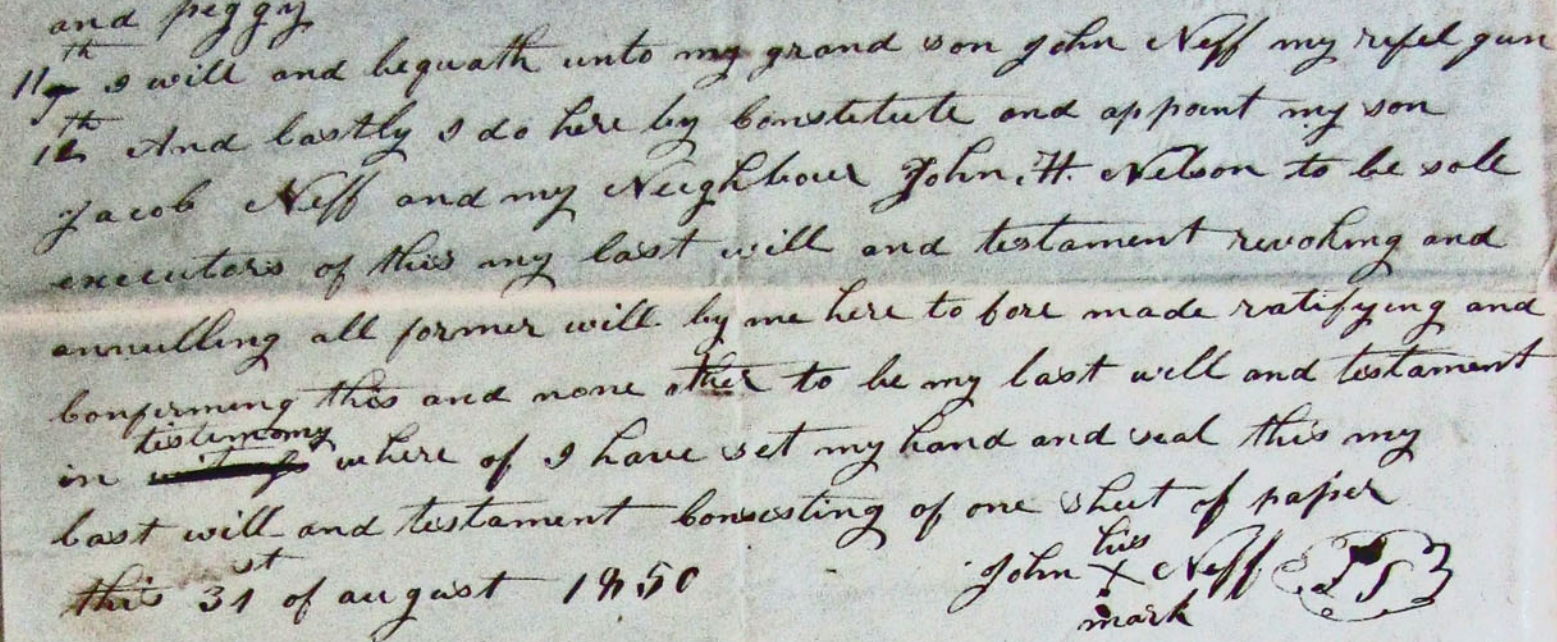 and peggy
11th I will and bequath unto my grand son John Neff my rifel gun
12th And lastly I do here by Constitute and appoint my son
Jacob Neff and my Neighbour John H. Nelson to be sole
executors of this my last will and testament revoking and
annulling all former will by me here to fore made ratifying and
Confirming this and none other to be my last will and testament
in testimony where of I have set my hand and seal this my
last will and testament Consisting of one sheet of paper
this 31st of august 1850 John his X mark Neff LS